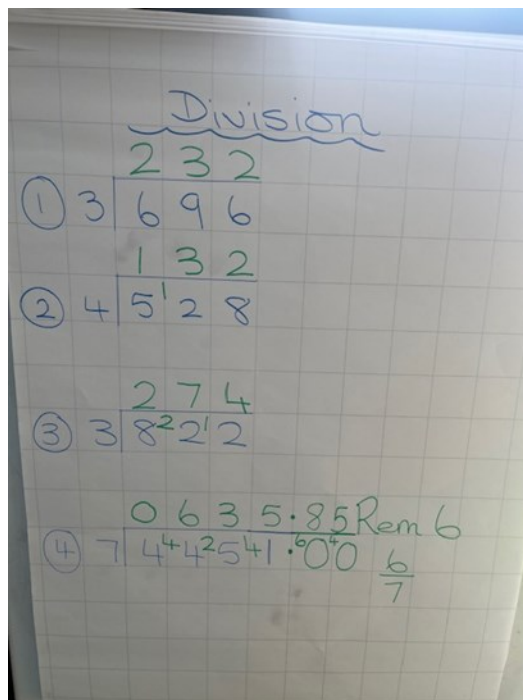 Division
2 3 2
① 3 6 9 6
1 3 2
② 4 5 ¹ 2 8
2 7 4
③ 3 8 ² 2 ¹ 2
0 6 3 5 . 8 5 Rem 6
④ 7 4 ⁴ 4 ² 5 ⁴ 1 . ⁶ 0 ⁴ 0
6
7